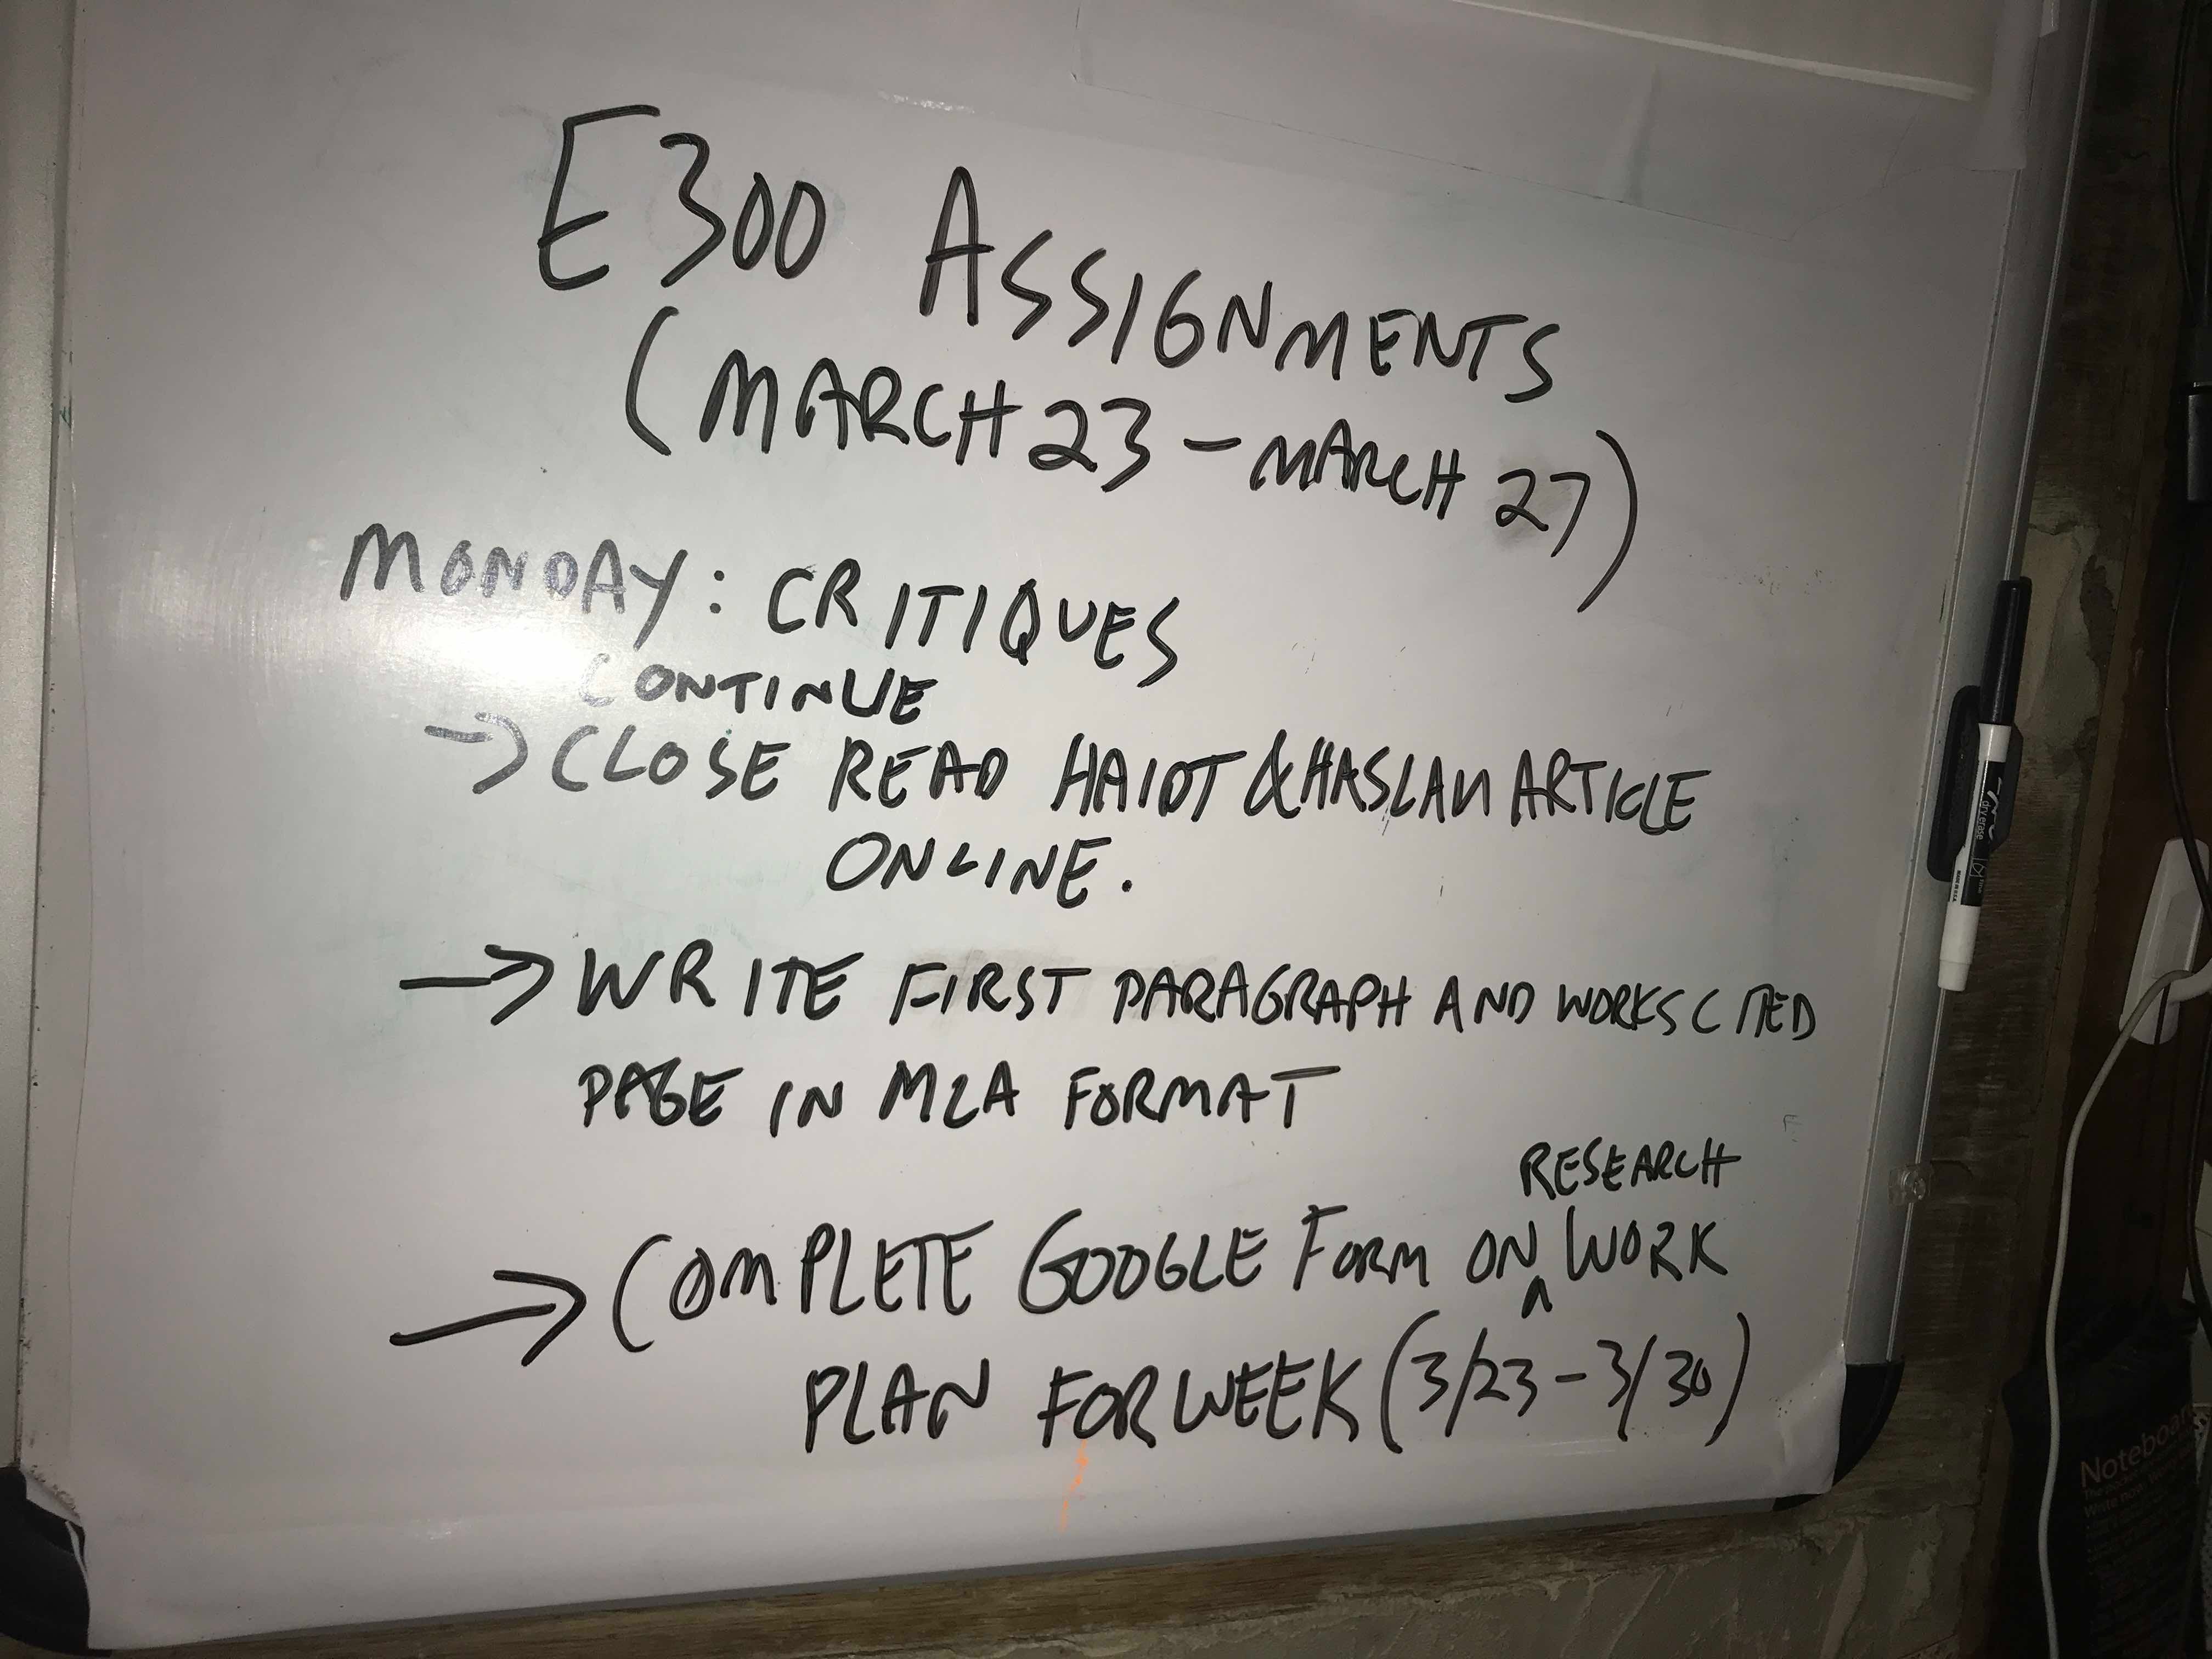 E300 ASSIGNMENTS
(MARCH 23 - MARCH 27)
MONDAY: CRITIQUES
CONTINUE
→ CLOSE READ HAIDT & HASLAM ARTICLE
ONLINE.
→ WRITE FIRST PARAGRAPH AND WORKS CITED
PAGE IN MLA FORMAT
RESEARCH
→ COMPLETE GOOGLE FORM ON ^ WORK
PLAN FOR WEEK (3/23 - 3/30)
dry erase